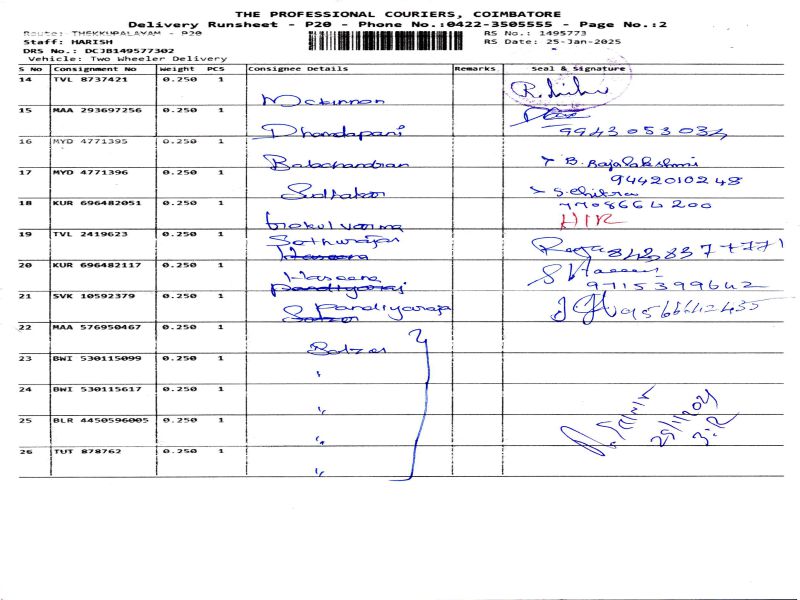 THE PROFESSIONAL COURIERS, COIMBATORE
Delivery Runsheet - P20 - Phone No.:0422-3505555 - Page No.:2
Route: THEKKUPALAYAM - P20
RS No.: 1495773
Staff: HARISH
RS Date: 25-Jan-2025
DRS No.: DCJB149577302
Vehicle: Two Wheeler Delivery
S No Consignment No Weight PCS Consignee Details Remarks Seal & Signature
14 TVL 8737421 0.250 1 Mckinnon
15 MAA 293697256 0.250 1 Dhandapani 9943053034
16 MYD 4771395 0.250 1 Balachandran B. Rajalakshmi
9442010248
17 MYD 4771396 0.250 1 Sudhakar S. Chitra
7708664200
18 KUR 696482051 0.250 1 Gokul varma H/R
19 TVL 2419623 0.250 1 Sathuraja
Haseena
20 KUR 696482117 0.250 1 Haseena 9715399642
Pandiyaraj
21 SVK 10592379 0.250 1 Pandiyaraja 9566612435
22 MAA 576950467 0.250 1
23 BWI 530115099 0.250 1 "
24 BWI 530115617 0.250 1 "
25 BLR 4450596005 0.250 1 "
26 TUT 878762 0.250 1 "